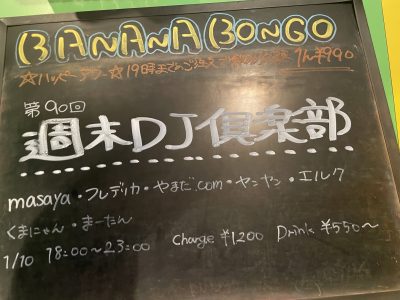 BANANA BONGO
☆ハッピーアワー☆19時までのご注文で 1h¥990
第90回
週末DJ倶楽部
masaya・フレデリカ・やまだ.com・ヤンヤン・エルク
くまにゃん・まーたん
1/10 18:00〜23:00 Charge ¥1200 Drink ¥550〜